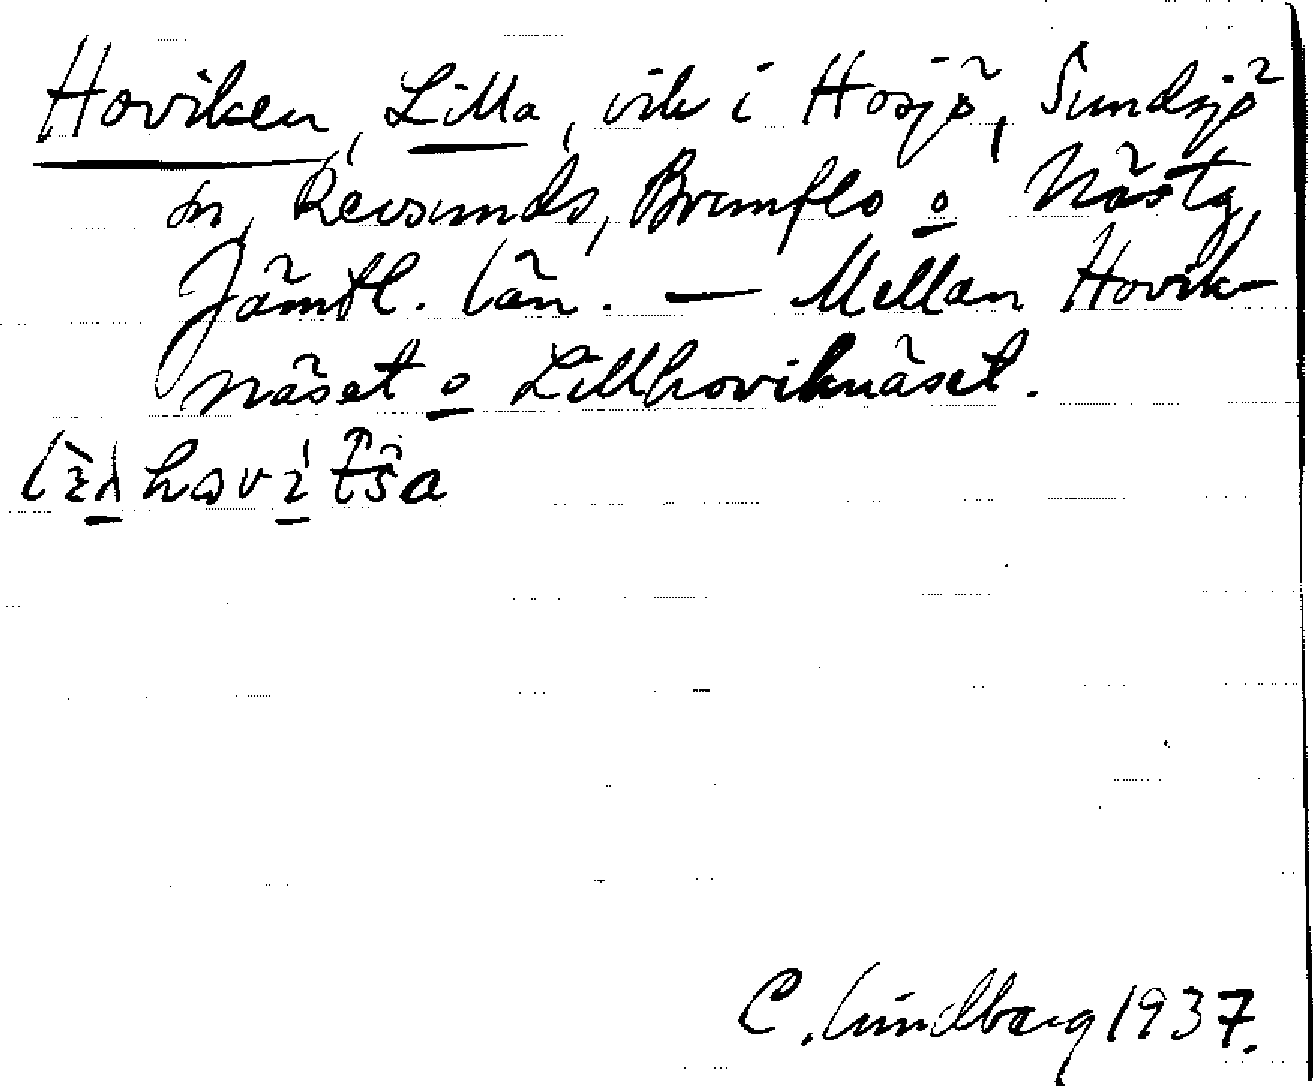 Hoviken, Lilla, vik i Hosjö, Sundsjö
sn, Revsunds, Brunflo o Näs tg,
Jämtl. län. — Mellan Hovik-
näset o Lillhoviknäset.
C. Lindberg 1937.